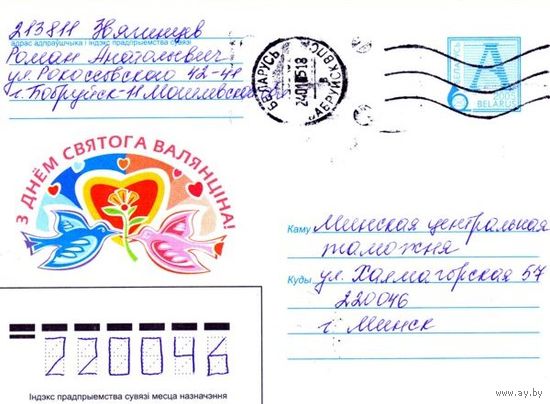 213811 Нялинцев
адрас адпраўшчыка і індэкс прадпрыемства сувязі
Роман Анатольевич
ул. Рокосовского 42-41
г. Бобруйск-11 Могилевской
БЕЛАРУСЬ
240105 18
А
БЕЛАРУСЬ
BELARUS
2005
З ДНЁМ СВЯТОГА ВАЛЯНЦІНА!
Каму Минская центральная
таможня
Куды ул. Халмагорская 57
220046
г. Минск
220046
Індэкс прадпрыемства сувязі месца назначэння
www.ay.by